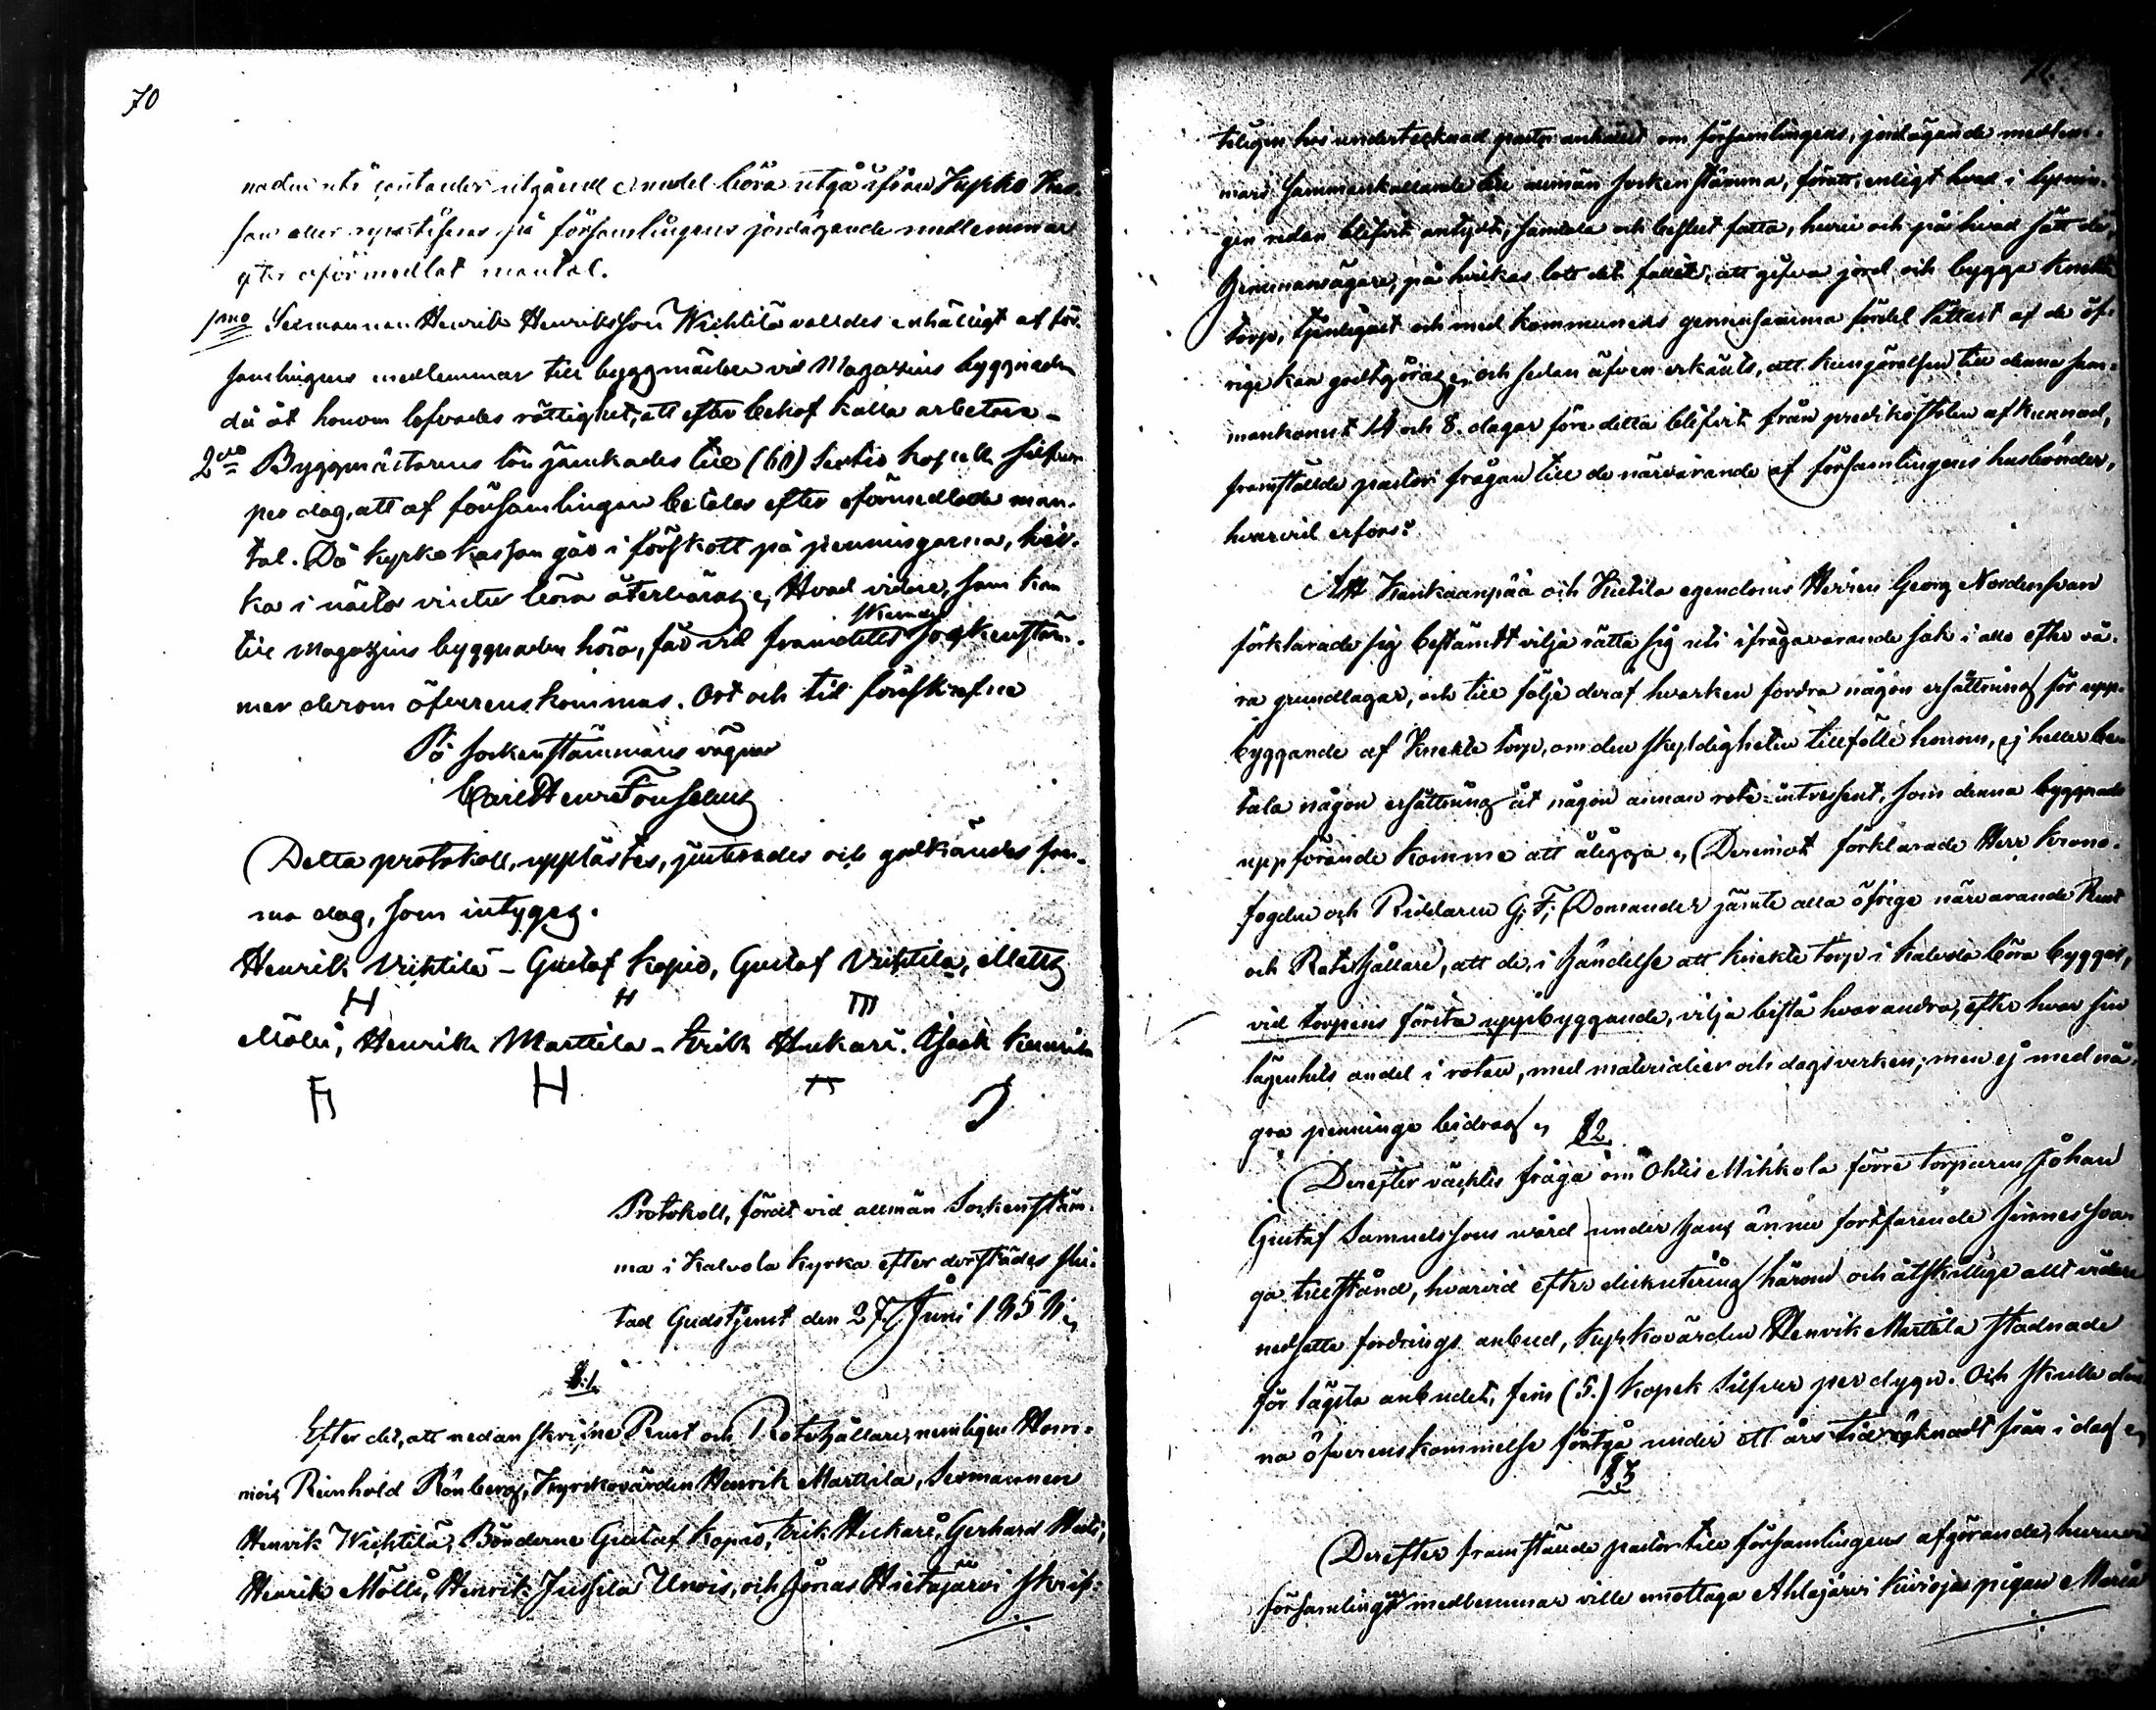 70
naden uti contanter utgående medel böra utgå ifrån Kyrko Kas-
san eller repartiseras på församlingens jordägande medlemmar
efter oförmedlat mantal.
1mo Sexmannen Henrik Henriksson Wichtilä valldes enhälligt af för-
samlingens medlemmar till byggmästare vid Magazins byggnaden
då åt honom lofvades rättighet, att efter behof kalla arbetare –
2do Byggmästarens lön jämkades till (60) Sextio kopek silfver
per dag, att af församlingen betalas efter oförmedlade man-
tal. Då kyrko kassan gör i förskott på penningarna, hvil-
ka i nästa vinter böra återbäras, Hvad vidare, som kan
till Magazins byggnaden höra, får vid framdeles skeende Sockenstäm-
mor derom öfverenskommas. Ort och tid förskrifne
På Sockenstämmans vägnar
Carl Henr Fonselius
Detta protokoll, upplästes, justerades och godkändes sam-
ma dag, som intygas.
Henrik Wichtilä – Gustaf Kopio, Gustaf Wichtilä, Matts
H H III
Mölli, Henrik Marttila – Erik Hukari. Isaak
H
Protokoll, fördt vid allmän Sockenstäm-
ma i Kalvola Kyrka efter derstädes slu-
tad Gudstjenst den 27 Juni 1858,
§:1.
Efter det, att nedanskrifne Rust och Rotehållare, nemligen Herr
Reinhold Rönberg, Kyrkovärden Henrik Marttila, Sexmannen
Henrik Wichtilä, Bönderne Gustaf Kopio, Erik Hukari, Gerhard
Henrik Mölli, Henrik Jussila Unois, och Jonas Hietajärvi skrift-
teligen hos undertecknad pastor anhållit om församlingens jordägande medlem-
mars sammankallande till allmän sockenstämma, föratt, enligt hvad i lysnin-
gen redan blifvit antydt, samtala och beslut fatta, huru och på hvad sätt de
hemmansägare, på hvilkas lott det fallit, att gifva jord och bygga knekte
torp, tjenligast och med kommunens gemensamma fördel lättast af de öf-
rige kan godtgöras, och sedan äfven erkänts, att kungörelsen till denna sam-
mankomst 14 och 8. dagar före detta blifvit från predikostolen afkunnad,
framställde pastor frågan till de närvarande af församlingens husbönder,
hvarvid erfors:
Att Kankaanpää och Kietilä egendoms Herren Georg Nordenswan
förklarade sig bestämdt vilja rätta sig uti ifrågavarande sak i allo efter vå-
ra grundlagar, och till följe deraf hvarken fordra någon ersättning för upp-
byggande af Knekte torp, om den skyldigheten tillfölle honom, ej heller be-
tala någon ersättning åt någon annan rote-intressent, som denna byggnads
uppförande komme att åligga, Deremot förklarade Herr Krono-
fogden och Riddaren G. F. Domander jämte alla öfrige närvarande Rust
och Rotehållare, att de, i händelse att knekte torp i Kalvola böra byggas,
vid torpens första uppbyggande, vilja bistå hvarandra, efter hvar sin
lägenhets andel i roten, med materialier och dagsverken; men ej med nå-
gra penninge bidrag, §2.
Derefter väcktes fråga om Ohlis Mikkola förre torparen Johan
Gustaf Samuelssons vård under hans ännu fortfarande sinnessva-
ga tillstånd, hvarvid efter diskutering härom och åtskillige allt vidare
nedsatte fordrings anbud, Kyrkovärden Henrik Marttila stadnade
för lägsta anbudet, fem (5.) kopek silfver per dygn. Och skulle den-
na öfverenskommelse fortgå under ett års tid räknadt från i dag
§3
Derefter framställde pastor till församlingens afgörande, huruvida
församlingens medlemmar ville emottaga Ahlajärvi Kivioja pigan Maria